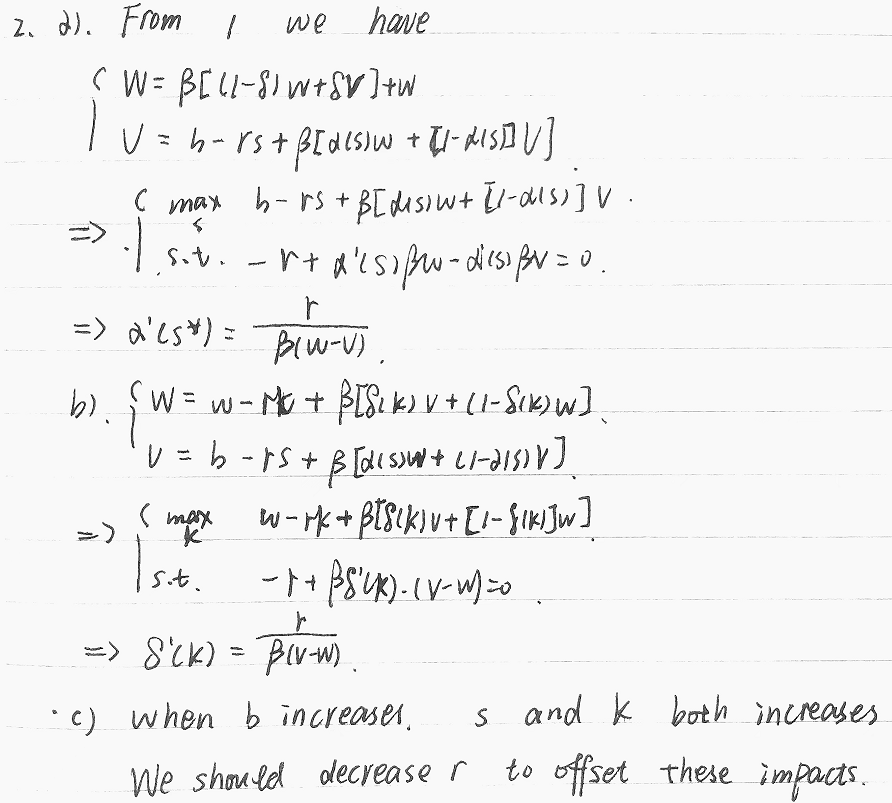 2. a). From 1 we have
W = β[(1-δ)W+δV]+w
V = b - rs + β[α(s)W + [1-α(s)]V].
=> max s b - rs + β[α(s)W + [1-α(s)]V.
s.t. -r + α'(s)βW - α'(s)βV = 0.
=> α'(s*) = r / β(W-V).
b). W = w - rk + β[δ(k)V + (1-δ(k)W].
V = b - rs + β[α(s)W + (1-α(s)V].
=> max k w - rk + β[δ(k)V + [1-δ(k)]W].
s.t. -r + βδ'(k)·(V-W)=0.
=> δ'(k) = r / β(V-W).
c) when b increases. s and k both increases
We should decrease r to offset these impacts.